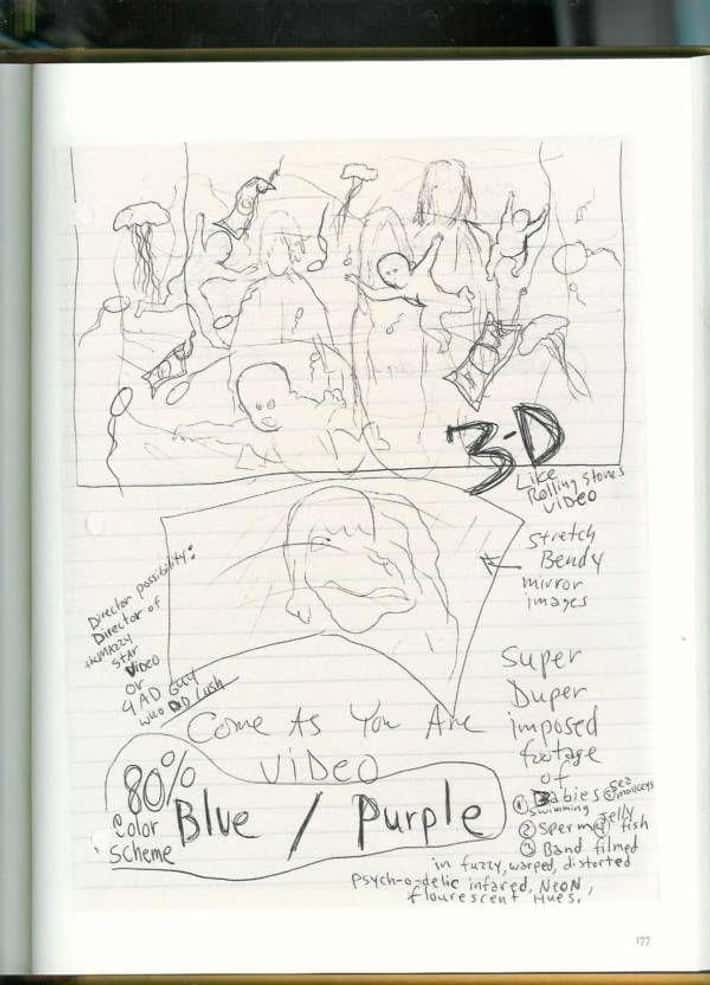 3-D
Like
Rolling Stones
Video
stretch
Bendy
mirror
images
Director possibility:
Director of
the MAZZY
STAR
Video
or
4AD Guy
who DiD Lush
Come As You Are
ViDEO
80%
Color
Scheme
Blue / Purple
Super
Duper
imposed
footage
of
① Babies ⑤ sea monkeys
swimming
② sperm ④ Jelly fish
③ Band filmed
in fuzzy, warped, distorted
psych-o-delic infared, NEoN,
flourescent Hues.
177